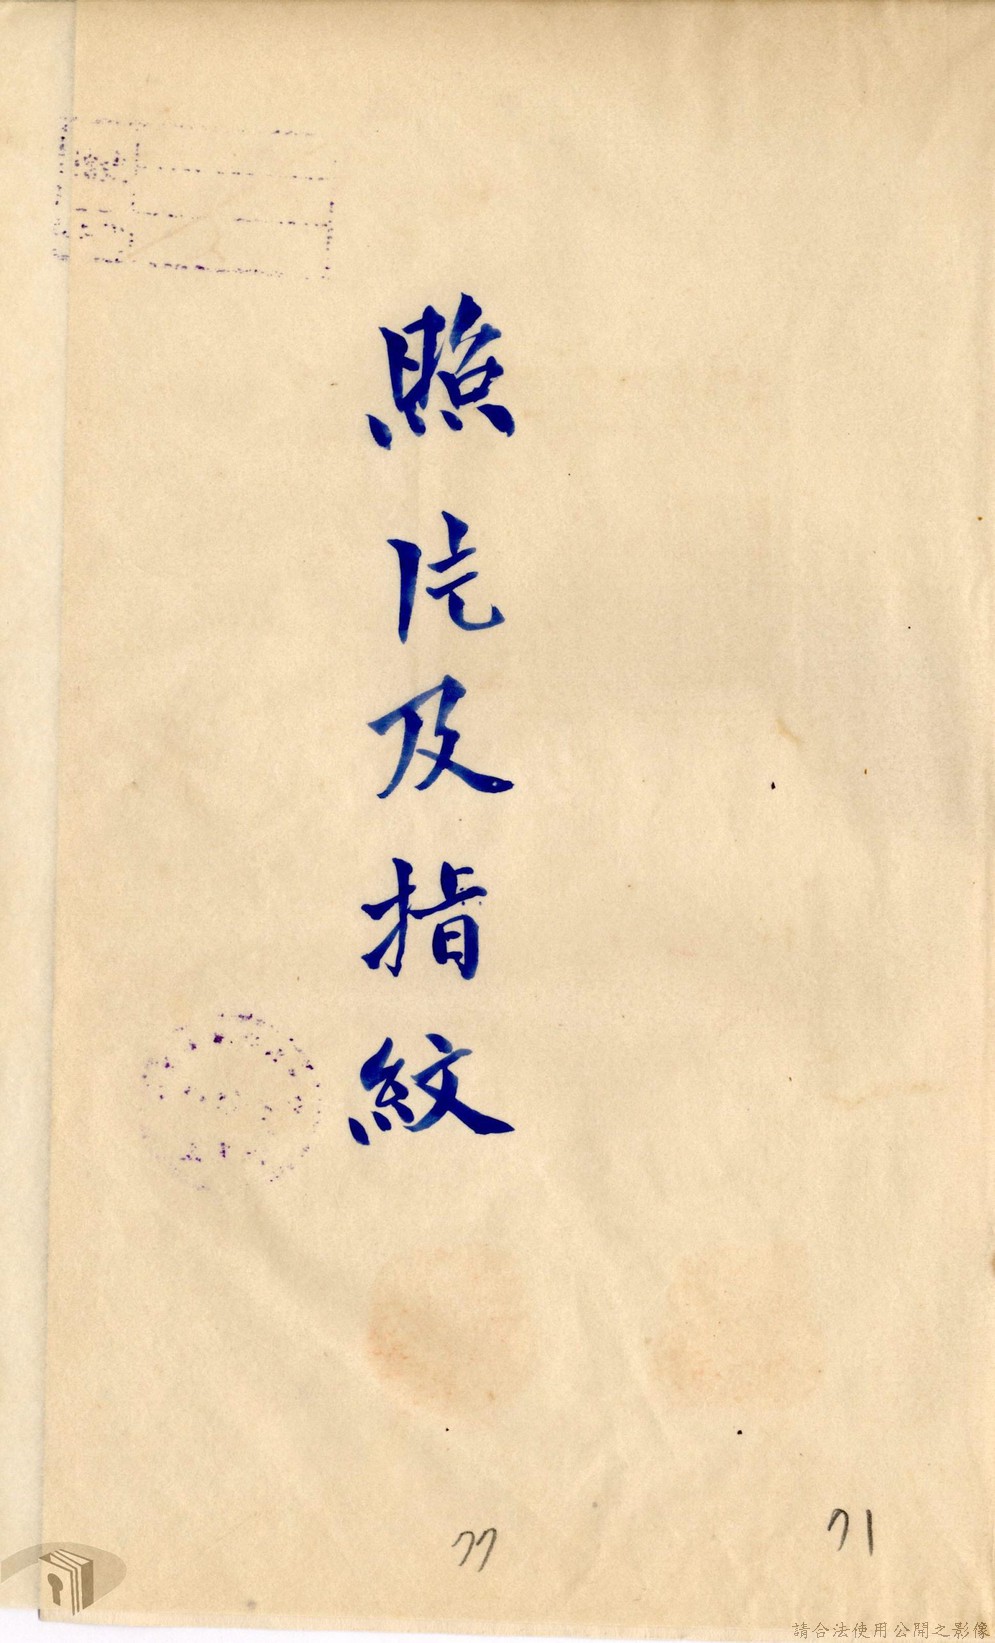 照片及指紋
77
71
請合法使用公開之影像